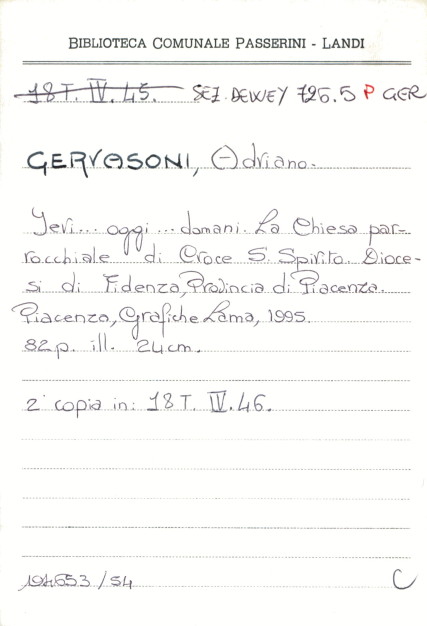 BIBLIOTECA COMUNALE PASSERINI - LANDI
18 T. IV. 45. SEZ. DEWEY 726.5 P GER
GERVASONI, Adriano.
Ieri... oggi... domani. La Chiesa par-
rocchiale di Croce S. Spirito. Dioce-
si di Fidenza, Provincia di Piacenza.
Piacenza, Grafiche Lama, 1995.
82 p. ill. 24 cm.
2ª copia in: 18 T. IV. 46.
194653/54 C